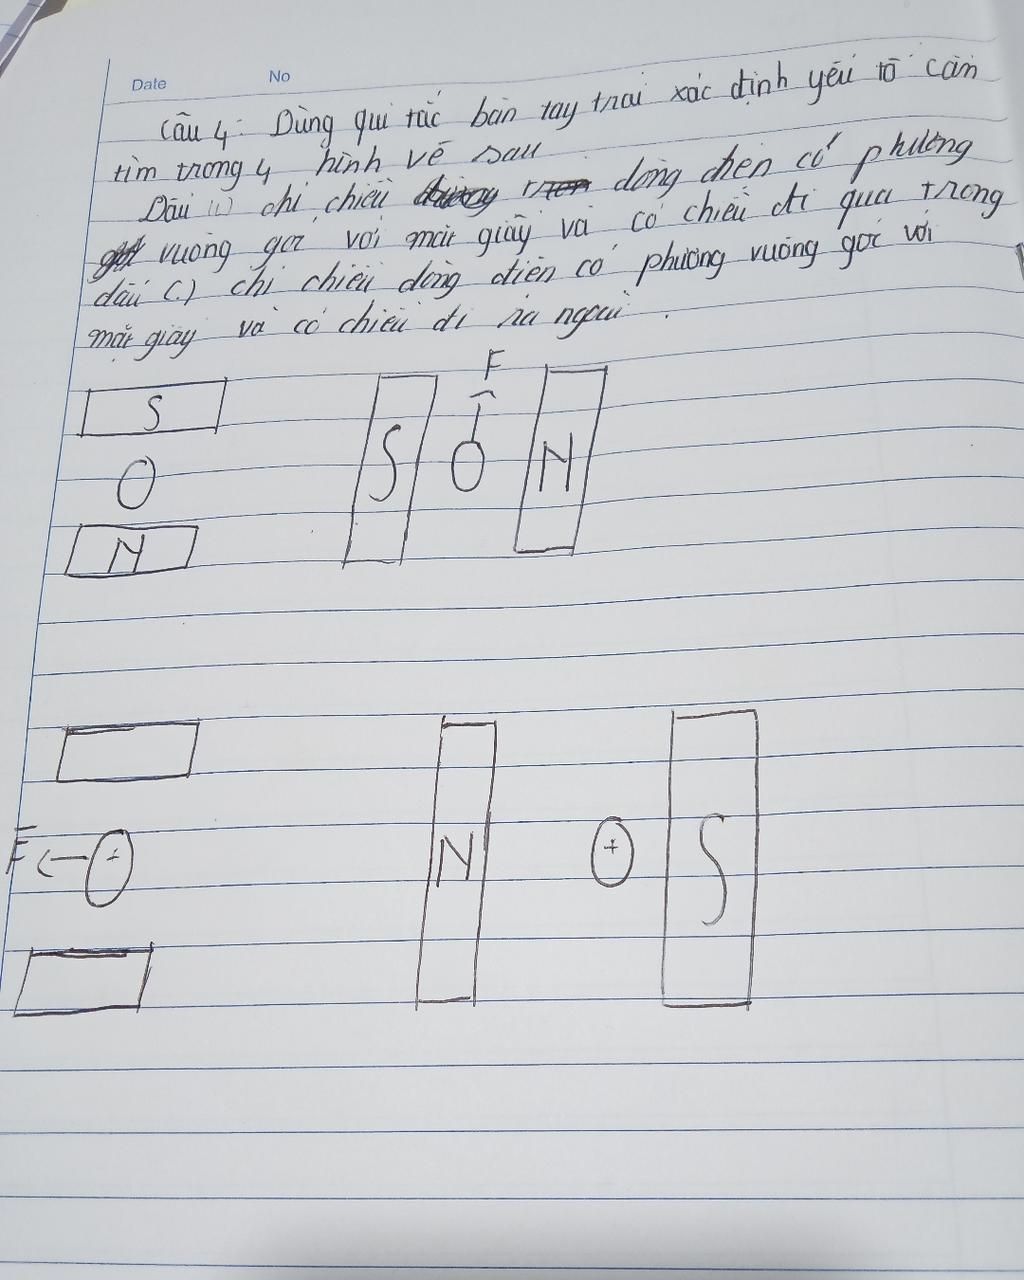 Date No
Câu 4: Dùng qui tắc bàn tay trái xác định yếu tố cần
tìm trong 4 hình vẽ sau
Dấu (+) chỉ chiều dòng điện có phương
vuông góc với mặt giấy và có chiều đi qua trong
dấu (.) chỉ chiều dòng điện có phương vuông góc với
mặt giấy và có chiều đi ra ngoài.
F
S S N
N
F + N + S